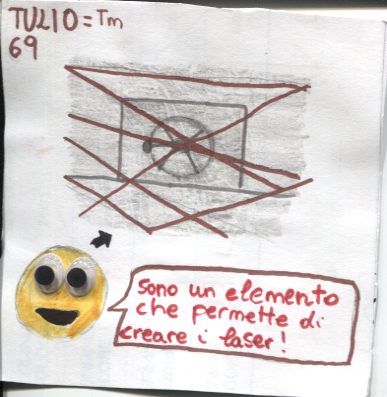 TULIO = Tm
69
sono un elemento
che permette di
creare i laser!